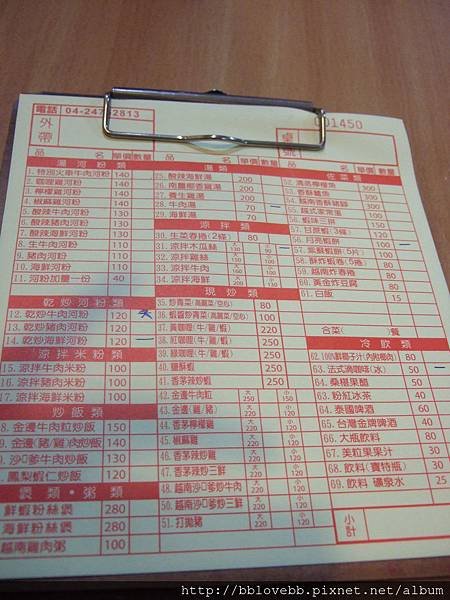 電話 04-247 2813
外帶
桌號
001450
品名 單價 數量
湯河粉類
1.特別火車牛肉河粉 140
2.咖哩雞河粉 140
3.檸檬雞河粉 140
4.椒麻雞河粉 140
5.酸辣牛肉河粉 120
6.酸辣豬肉河粉 120
7.酸辣海鮮河粉 120
8.生牛肉河粉 120
9.豬肉河粉 110
10.海鮮河粉 110
11.河粉加量一份 40
乾炒河粉類
12.乾炒牛肉河粉 120
13.乾炒豬肉河粉 120
14.乾炒海鮮河粉 120
涼拌米粉類
15.涼拌牛肉米粉 100
16.涼拌豬肉米粉 100
17.涼拌海鮮米粉 100
炒飯類
18.金邊牛肉粒炒飯 150
19.金邊(豬/雞)肉炒飯 140
牛肉炒飯 130
鳳梨蝦仁炒飯 120
煲類・粥類
鮮蝦粉絲煲 280
海鮮粉絲煲 280
越南雞肉粥 100
品名 單價 數量
湯類
25.酸辣海鮮湯 200
27.養生雞湯 200
28.牛肉湯
29.海鮮湯
涼拌類
30.生菜春捲(2條) 80
31.涼拌木瓜絲
32.涼拌雞絲
33.涼拌牛肉
34.涼拌海鮮
現炒類
35.炒青菜(高麗菜/空心) 80
36.蝦醬炒青菜(高麗菜/空心) 100
37.黃咖哩(牛/雞/蝦) 220
38.紅咖哩(牛/雞/蝦) 220
39.綠咖哩(牛/雞/蝦) 220
40.鹽酥蝦 250
41.香茅辣炒蝦 250
42.金邊牛肉粒 大250 小150
43.金邊(雞/豬) 大220 小120
44.香茅檸檬雞 大220 小120
45.椒麻雞 大220 小120
46.香茅辣炒雞 大220 小120
47.香茅辣炒三鮮 大220 小120
48.越南沙爹炒牛肉 大220 小120
50.越南沙爹炒三鮮 大220 小120
51.打拋豬 大220 小120
佐菜類
52.清蒸檸檬魚 300
53.香酥鱸魚 300
54.越南香酥豬腳 300
56.蝦味三拼
57.甘蔗蝦(3條)
56.月亮蝦餅
57.紫蘇蝦餅(5片)
58.酥炸蝦捲(5條)
59.越南炸春捲 80
60.黃金炸豆腐 80
61.白飯 15
合菜( )餐
冷飲類
62.100%鮮椰子汁(內附椰肉) 80
63.法式滴咖啡(冰) 50
64.桑椹果醋 50
63.粉紅冰茶 40
64.泰國啤酒 60
65.台灣金牌啤酒 60
66.大瓶飲料 80
67.美粒果果汁 30
68.飲料(寶特瓶) 30
69.飲料 礦泉水 25
小計
http://bblovebb.pixnet.net/album